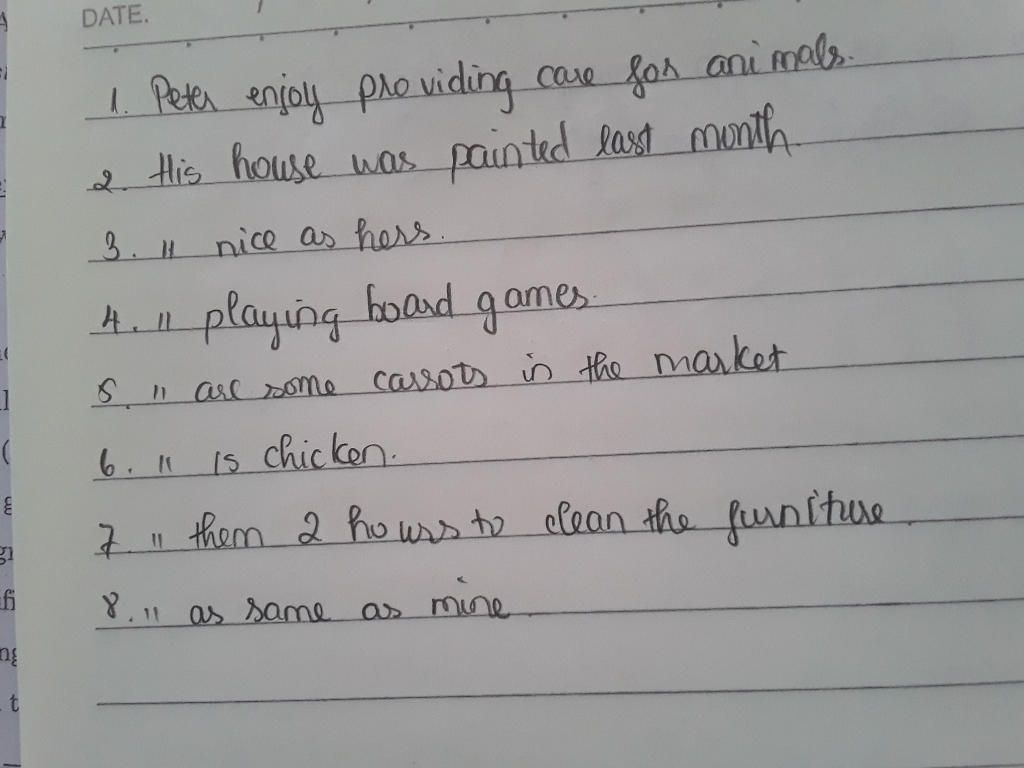 DATE.
1. Peter enjoy providing care for animals.
2. His house was painted last month.
3. " nice as hers.
4. " playing board games.
5. " are some carrots in the market
6. " is chicken.
7 " them 2 hours to clean the furniture.
8. " as same as mine